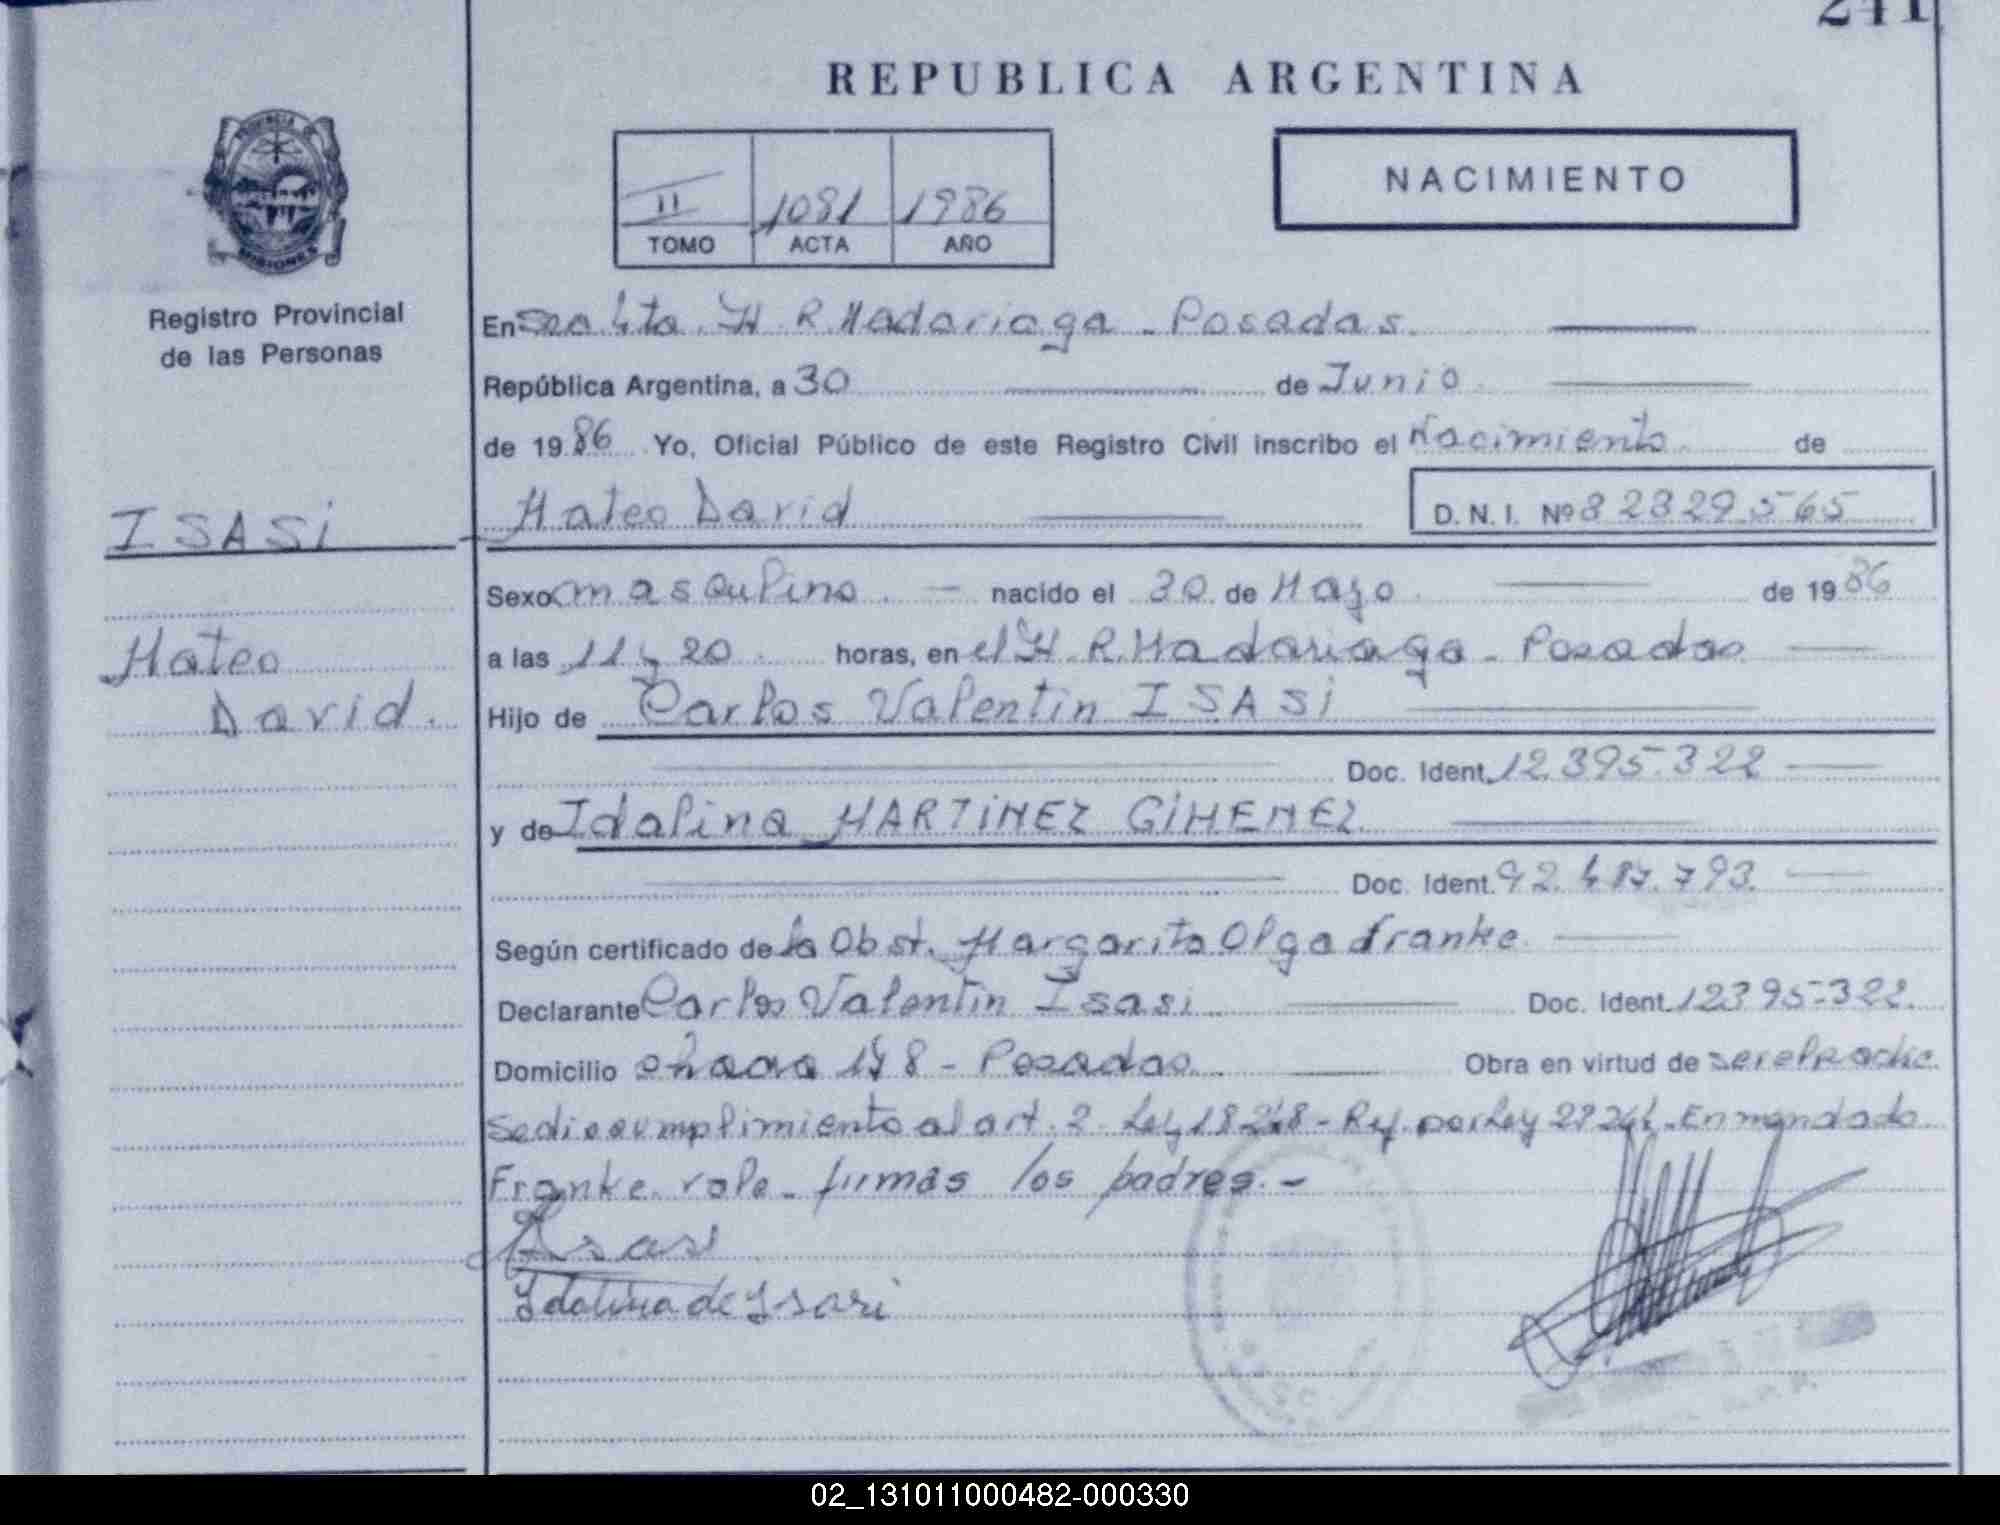 241
REPUBLICA ARGENTINA
PROVINCIA DE
MISIONES
Registro Provincial
de las Personas
II 1081 1986
TOMO ACTA AÑO
NACIMIENTO
En H. R. Madariaga - Posadas.
República Argentina, a 30 de Junio
de 1986 Yo, Oficial Público de este Registro Civil inscribo el Nacimiento de
ISASi
Mateo David
D. N. I. Nº 32329565
Sexo masculino. nacido el 30 de Mayo de 1986
Mateo
David.
a las 11 y 20 horas, en el H. R. Madariaga - Posadas
Hijo de Carlos Valentin ISASi
Doc. Ident. 12.395.322
y de Idalina MARTINEZ GIMENEZ
Doc. Ident. 92.487.793.
Según certificado de la Obst. Margarita Olga Franke.
Declarante Carlos Valentin Isasi Doc. Ident. 12395.322.
Domicilio chacra 178 - Posadas. Obra en virtud de
se dio cumplimiento al art. 2 Ley 18248 - Ref. por Ley - Enmendado
Franke. vale - firmas los padres. -
Isasi
Idalina de Isasi
02_131011000482-000330